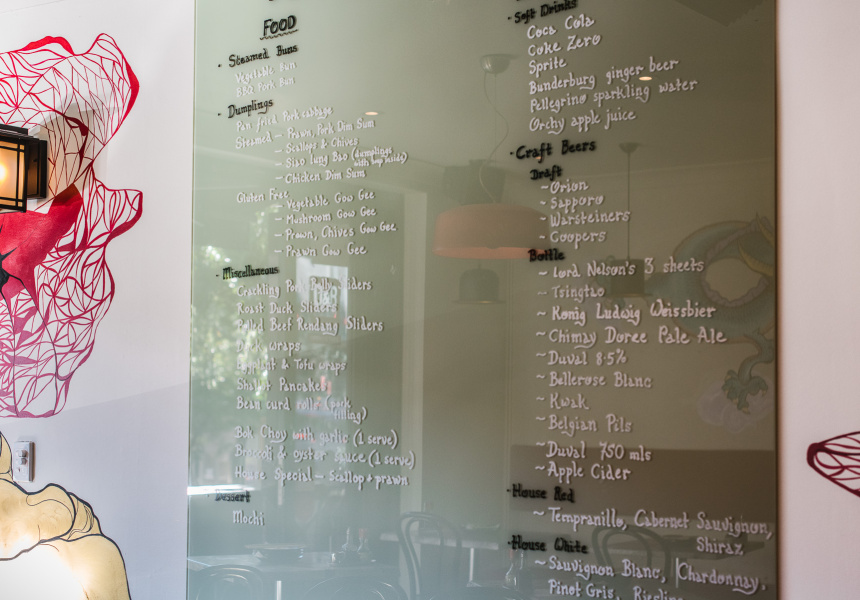 FOOD
· Steamed Buns
Vegetable Bun
BBQ Pork Bun
· Dumplings
Pan fried Pork cabbage
Steamed – Prawn, Pork Dim Sum
– Scallops & Chives
– Siao lung Bao (dumplings
with soup inside)
– Chicken Dim Sum
Gluten Free
– Vegetable Gow Gee
– Mushroom Gow Gee
– Prawn, Chives Gow Gee
– Prawn Gow Gee
· Miscellaneous
Crackling Pork Belly Sliders
Roast Duck Sliders
Pulled Beef Rendang Sliders
Duck wraps
Eggplant & Tofu wraps
Shallot Pancakes
Bean curd rolls (pork
filling)
Bok Choy with garlic (1 serve)
Broccoli & oyster sauce (1 serve)
House Special – scallop + prawn
· Dessert
Mochi
· Soft Drinks
Coca Cola
Coke Zero
Sprite
Bunderburg ginger beer
Pellegrino sparkling water
Orchy apple juice
· Craft Beers
Draft
~ Orion
~ Sapporo
~ Warsteiners
~ Coopers
Bottle
~ Lord Nelson's 3 sheets
~ Tsingtao
~ Konig Ludwig Weissbier
~ Chimay Doree Pale Ale
~ Duval 8.5%
~ Bellerose Blanc
~ Kwak
~ Belgian Pils
~ Duval 750 mls
~ Apple Cider
· House Red
~ Tempranillo, Cabernet Sauvignon,
Shiraz
· House White
~ Sauvignon Blanc, Chardonnay,
Pinot Gris, Riesling